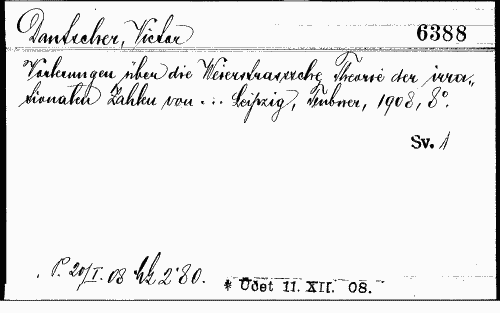 Dantscher, Victor 6388
Vorlesungen über die Weierstrassche Theorie der irra-
tionalen Zahlen von ... Leipzig, Teubner, 1908, 8°.
Sv. 1
P. 20/I. 08 2'80.
* Účet 11. XII. 08.